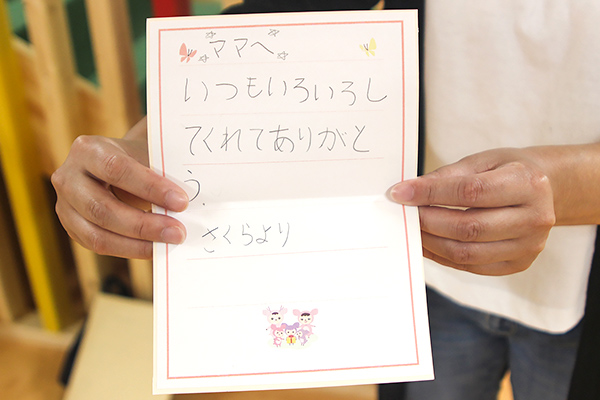 ママへ
いつもいろいろし
てくれてありがと
う.
さくらより